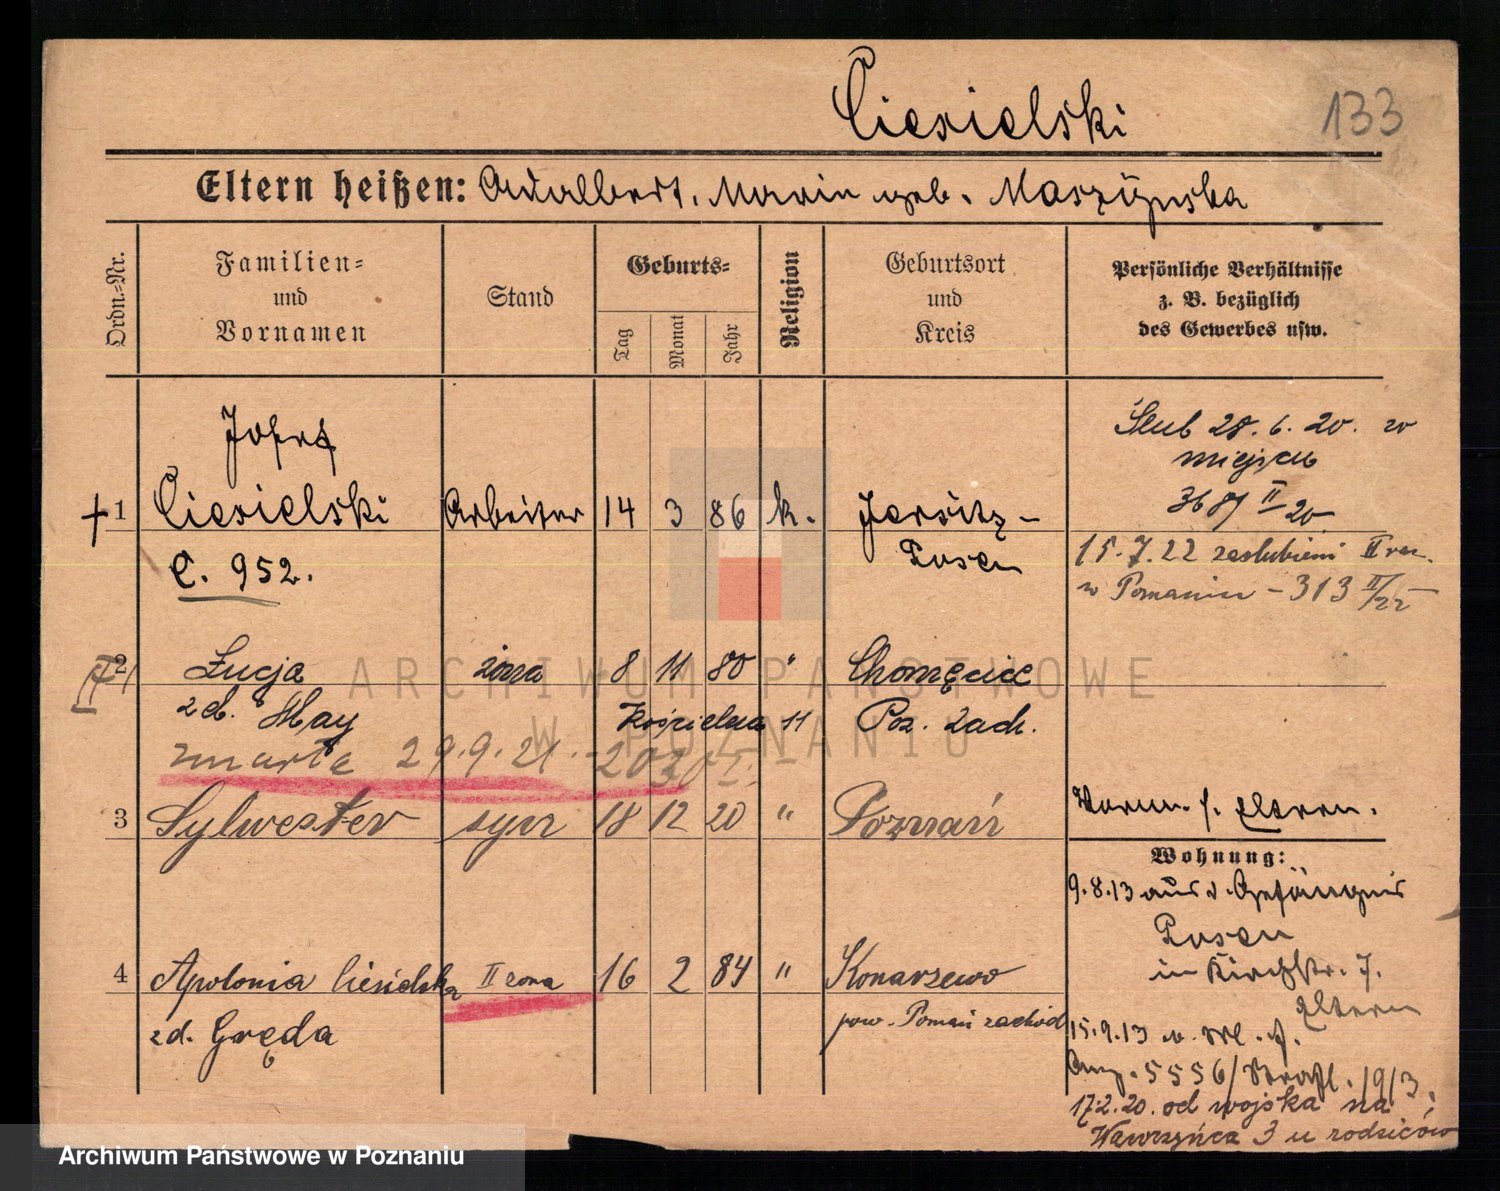 Ciesielski
133
Eltern heißen: Adalbert, Marie geb. Maszyńska
Ordn.-Nr.
Familien-
und
Vornamen
Stand
Geburts-
Tag
Monat
Jahr
Religion
Geburtsort
und
Kreis
Persönliche Verhältnisse
z. B. bezüglich
des Gewerbes usw.
Josef
† 1 Ciesielski Arbeiter 14 3 86 k. Jersitz-
Posen
C. 952.
Ślub 28. 6. 20. w
miejscu
II 20
15.7.22 zaślubieni II
w Poznaniu - 313 II/22
2 Łucja żona 8 11 80 " Chomęcice
zd. May Kościelna 11 Poz. zach.
zmarła 29.9.21.
3 Sylwester syn 18 12 20 " Poznań
Eltern.
Wohnung:
9.8.13 aus d. Gefängnis
Posen
in Kirchstr. 7.
Eltern
4 Apolonia Ciesielska II żona 16 2 84 " Konarzewo
zd. Gręda pow. Poznań zachód
15.9.13 v.
5556/ 1913.
17.2.20. od wojska na
Wawrzyńca 3 u rodziców
ARCHIWUM PAŃSTWOWE
W POZNANIU
Archiwum Państwowe w Poznaniu